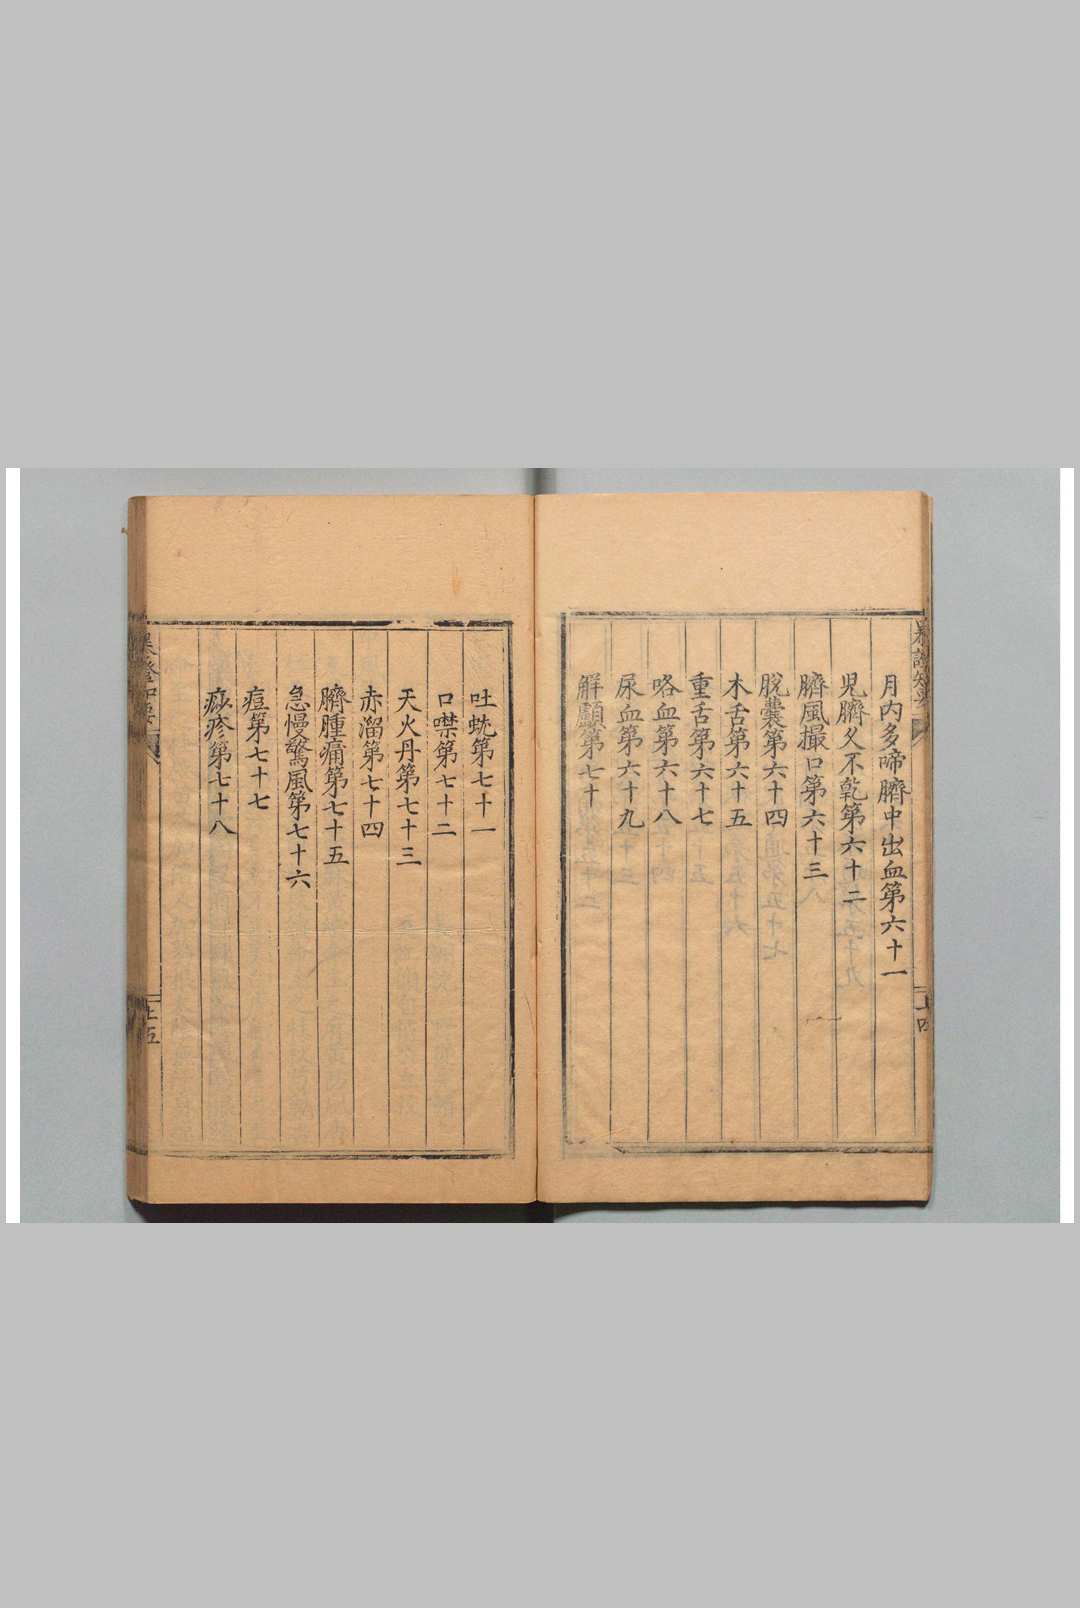 月内多啼臍中出血第六十一
児臍久不乾第六十二
臍風撮口第六十三
脫囊第六十四
木舌第六十五
重舌第六十七
咯血第六十八
尿血第六十九
解顱第七十
吐蚘第七十一
口噤第七十二
天火丹第七十三
赤溜第七十四
臍腫痛第七十五
急慢驚風第七十六
痘第七十七
痧疹第七十八